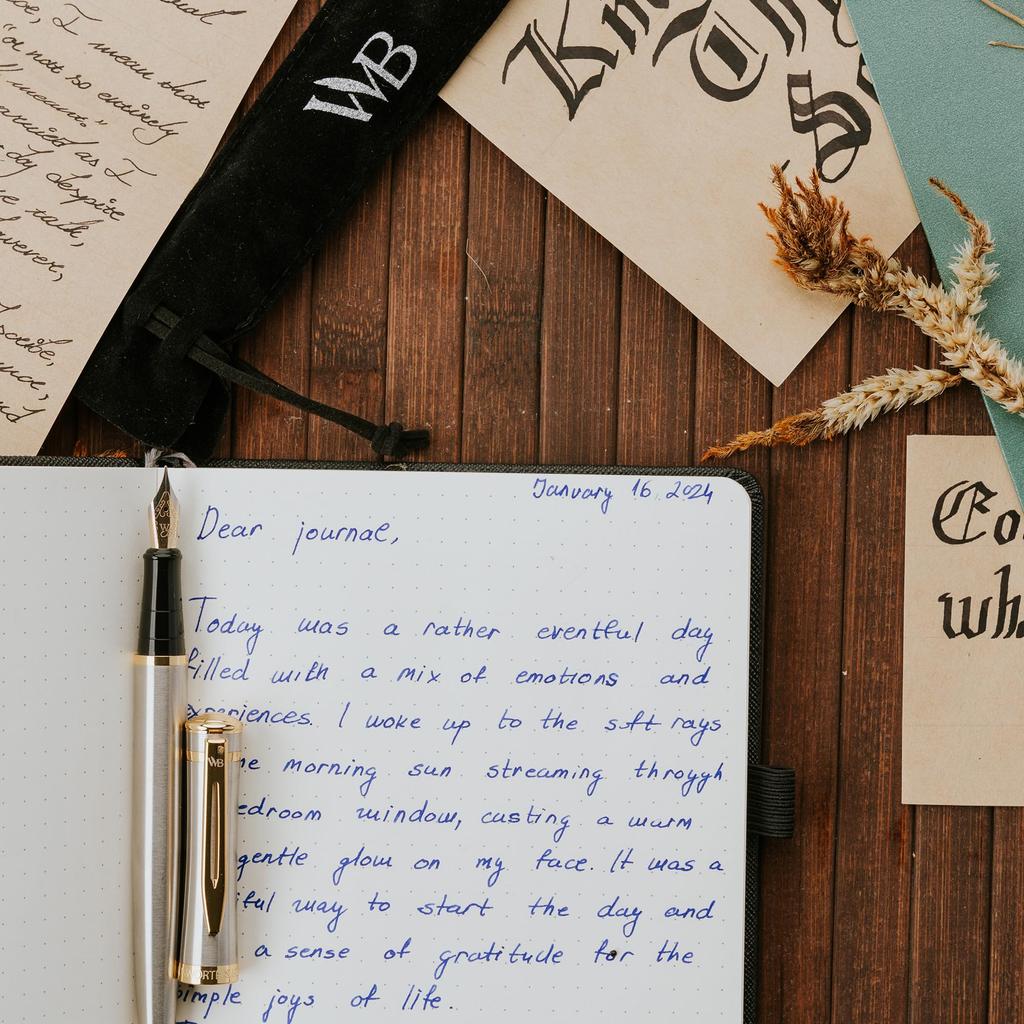 I mean that
"or not so entirely
married as I
day despite
we talk,
however,
WB
January 16 2024
Dear journal,
Today was a rather eventful day
filled with a mix of emotions and
experiences. I woke up to the soft rays
morning sun streaming throygh
edroom window, casting a warm
gentle glow on my face. It was a
iful way to start the day and
a sense of gratitude for the
simple joys of life.
WB
WORTH